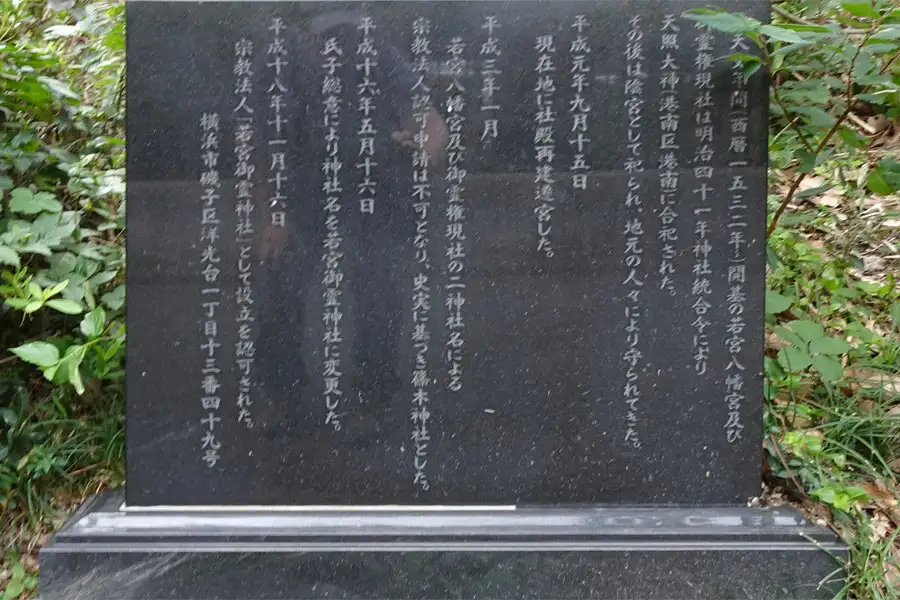 天 年間(西暦一五三二年~)開基の若宮八幡宮及び
霊権現社は明治四十一年神社統合令により
天照大神(港南区港南)に合祀された。
その後は陰宮として祀られ、地元の人々により守られてきた。
平成元年九月十五日
現在地に社殿再建造宮した。
平成三年一月
若宮八幡宮及び御霊権現社の二神社名による
宗教法人認可申請は不可となり、史実に基づき篠木神社とした。
平成十六年五月十六日
氏子総意により神社名を若宮御霊神社に変更した。
平成十八年十一月十六日
宗教法人「若宮御霊神社」として設立を認可された。
横浜市磯子区洋光台一丁目十三番四十九号